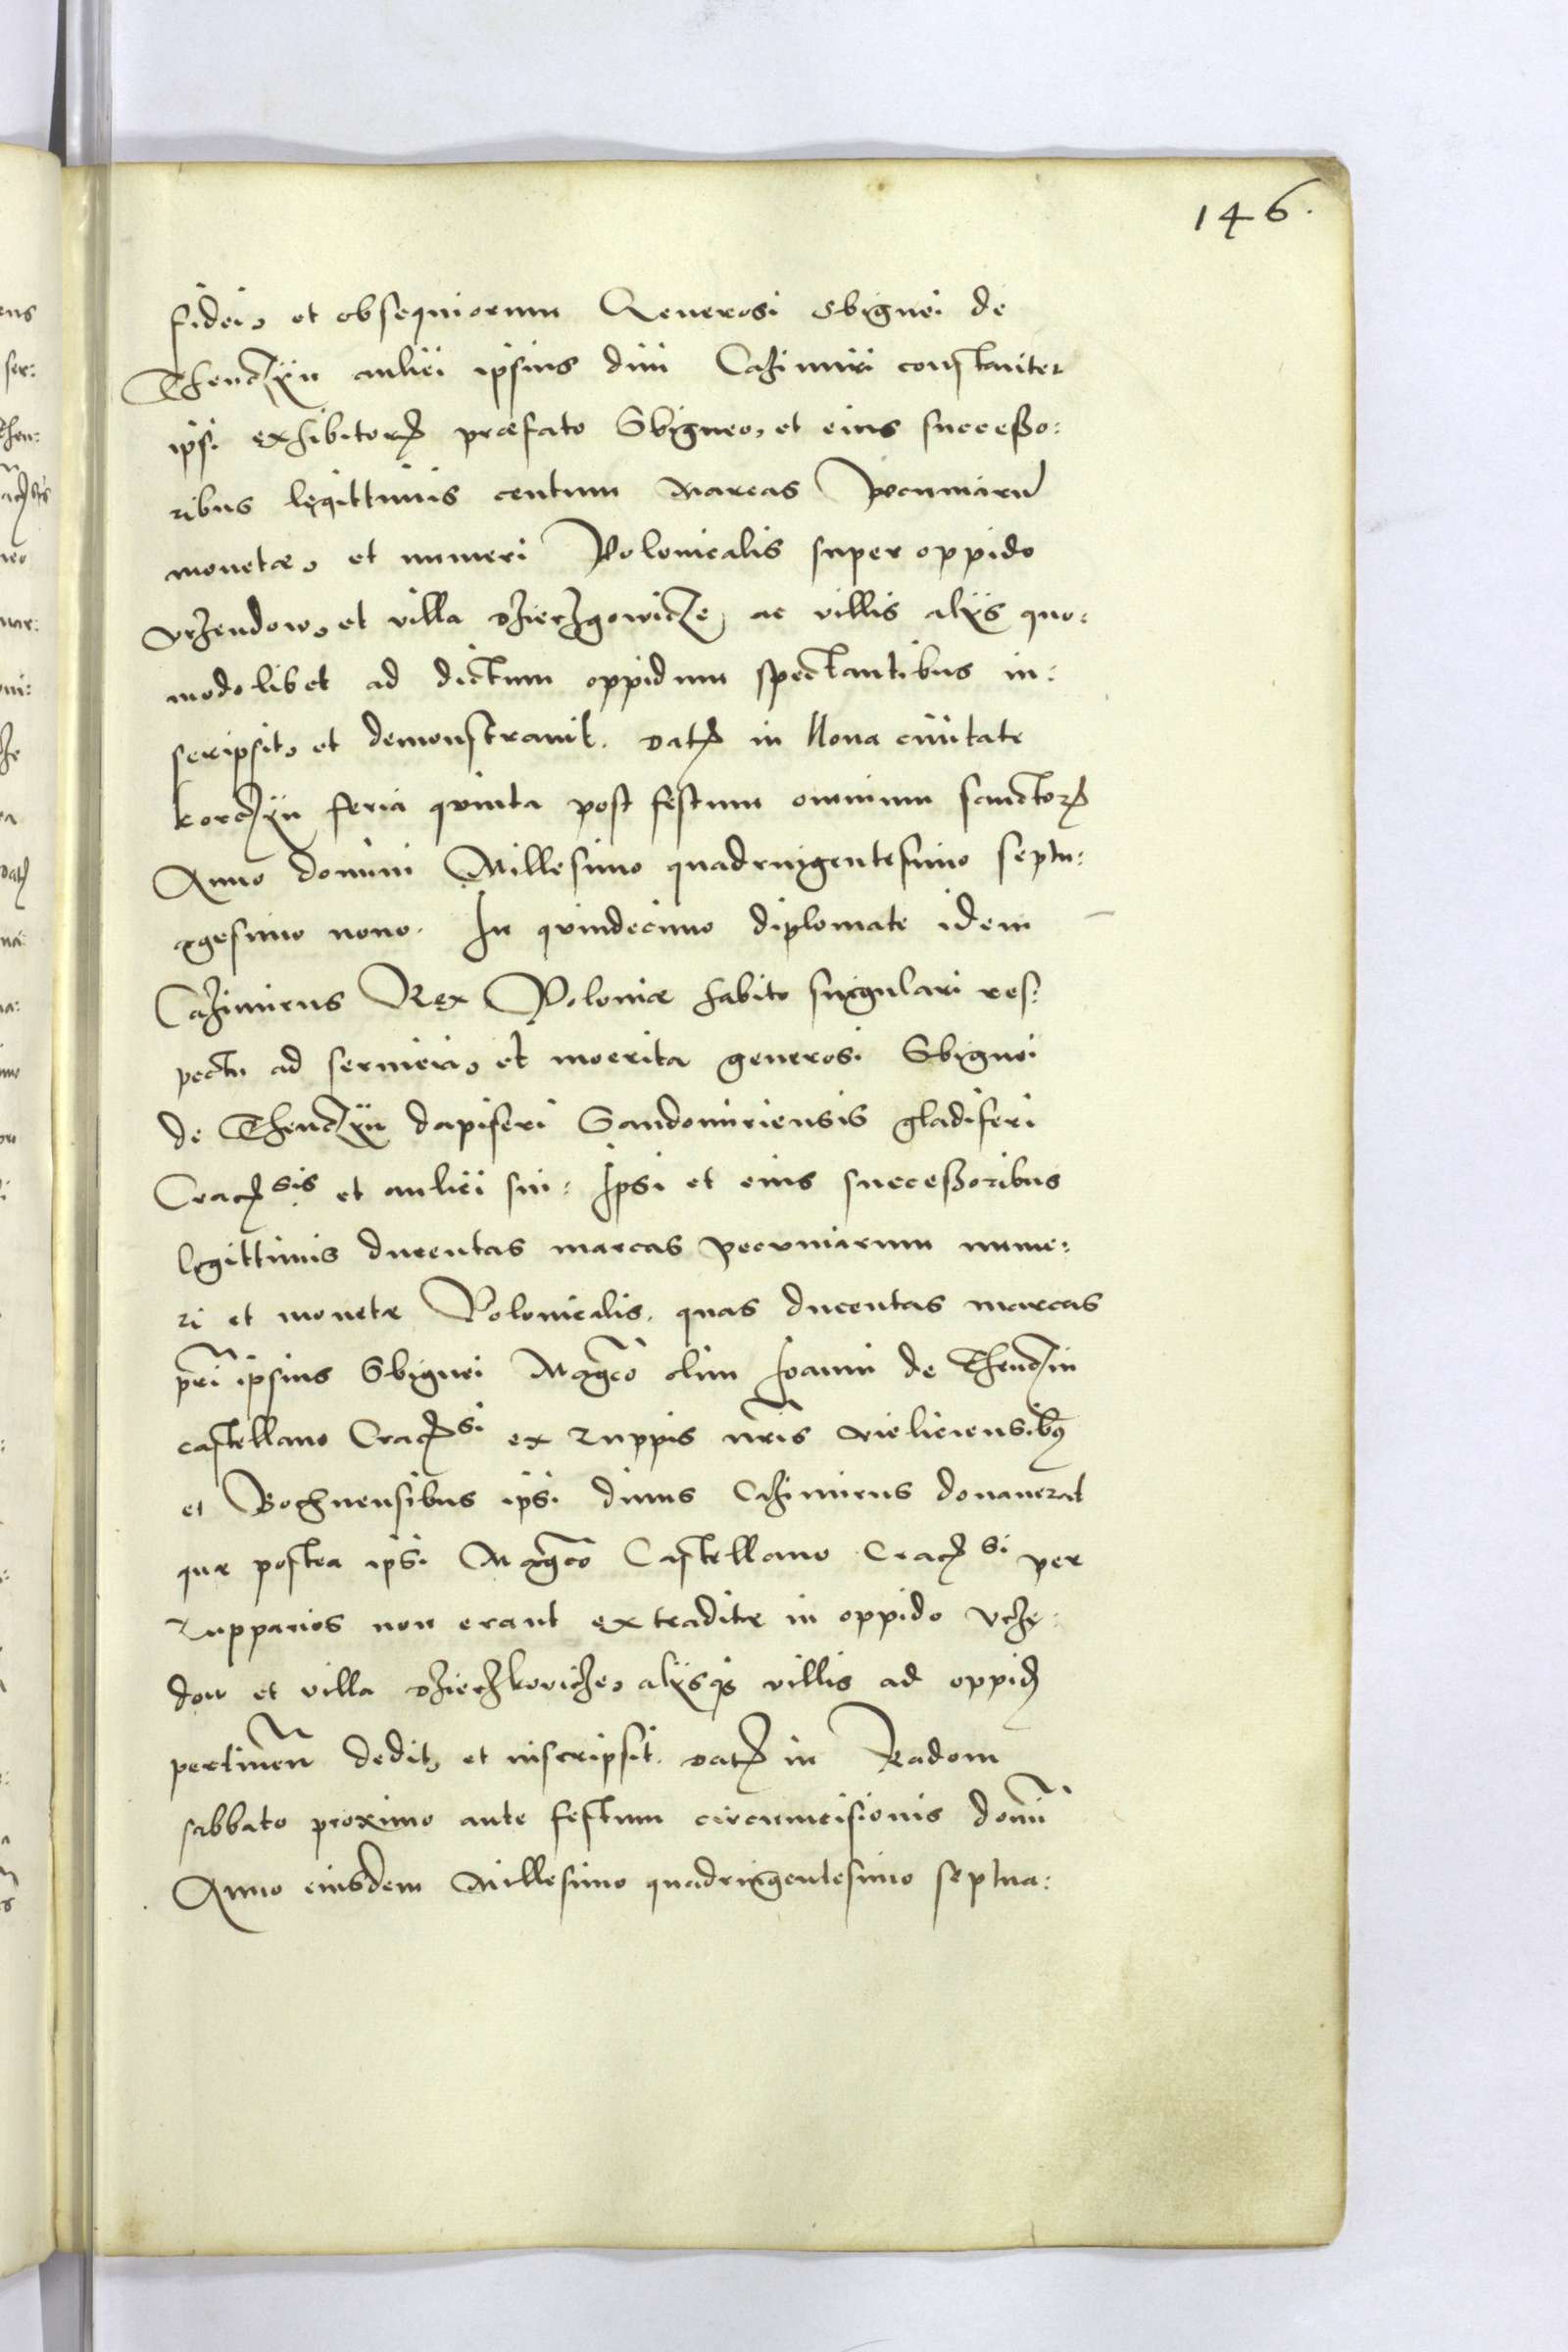 146.
fidei, et obsequiorum Generosi Sbignei de
Thenczÿn aulici ipsius diui Casimiri constanter
ipsi exhibitorꝝ præfato Sbigneo, et eius successo:
ribus legittimis centum Marcas Pecuniarũ
monetæ, et numeri Polonicalis super oppido
Vrzendow, et villa Dzierzgowicze, ac villis alÿs quo:
modolibet ad dictum oppidum spectantibus in:
scripsit, et demonstrauit. Datꝝ in Noua ciuitate
Korczÿn feria quinta post festum omnium sanctorꝝ
Anno domini Millesimo quadringentesimo septu:
agesimo nono. In quindecimo diplomate idem
Casimirus Rex Poloniæ habito singulari res:
pectu ad seruicia, et moerita generosi Sbignei
de Thenczÿn dapiferi Sandomiriensis gladiferi
Cracꝝsis et aulici sui: Ipsi et eius successoribus
legittimis ducentas marcas pecuniarum nume:
ri et monetæ Polonicalis. quas ducentas marcas
pr̃i ipsius Sbignei Mag̃co olim Joanni de Thenczin
castellano Cracꝝsi ex zuppis nr̃is vieliciensibꝰ
et Bochnensibus ipsi diuus Casimirus donauerat
quæ postea ipsi Mag̃co Castellano Cracꝝsi per
zupparios non erant extraditæ in oppido Vrzę:
dow et villa dzierzkovicze, alÿsqꝫ villis ad oppidꝝ
pertineñ dedit, et inscripsit. Datꝝ in Radom
sabbato proximo ante festum circumcisionis domĩ
Anno eiusdem Millesimo quadringentesimo septua: